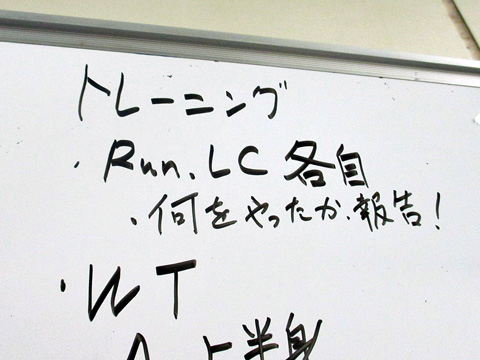 トレーニング
・Run, LC 各自
・何をやったか、報告!
・WT
上半身